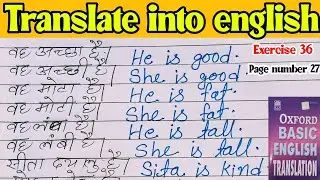 Translate into english
Exercise 36
Page number 27
वह अच्छा है। He is good.
वह अच्छी है। She is good
वह मोटा है। He is fat.
वह मोटी है। She is fat.
वह लंबा है। He is tall.
वह लंबी है। She is tall.
सीता दयालु है। Sita is kind
OXFORD
BASIC
ENGLISH
TRANSLATION